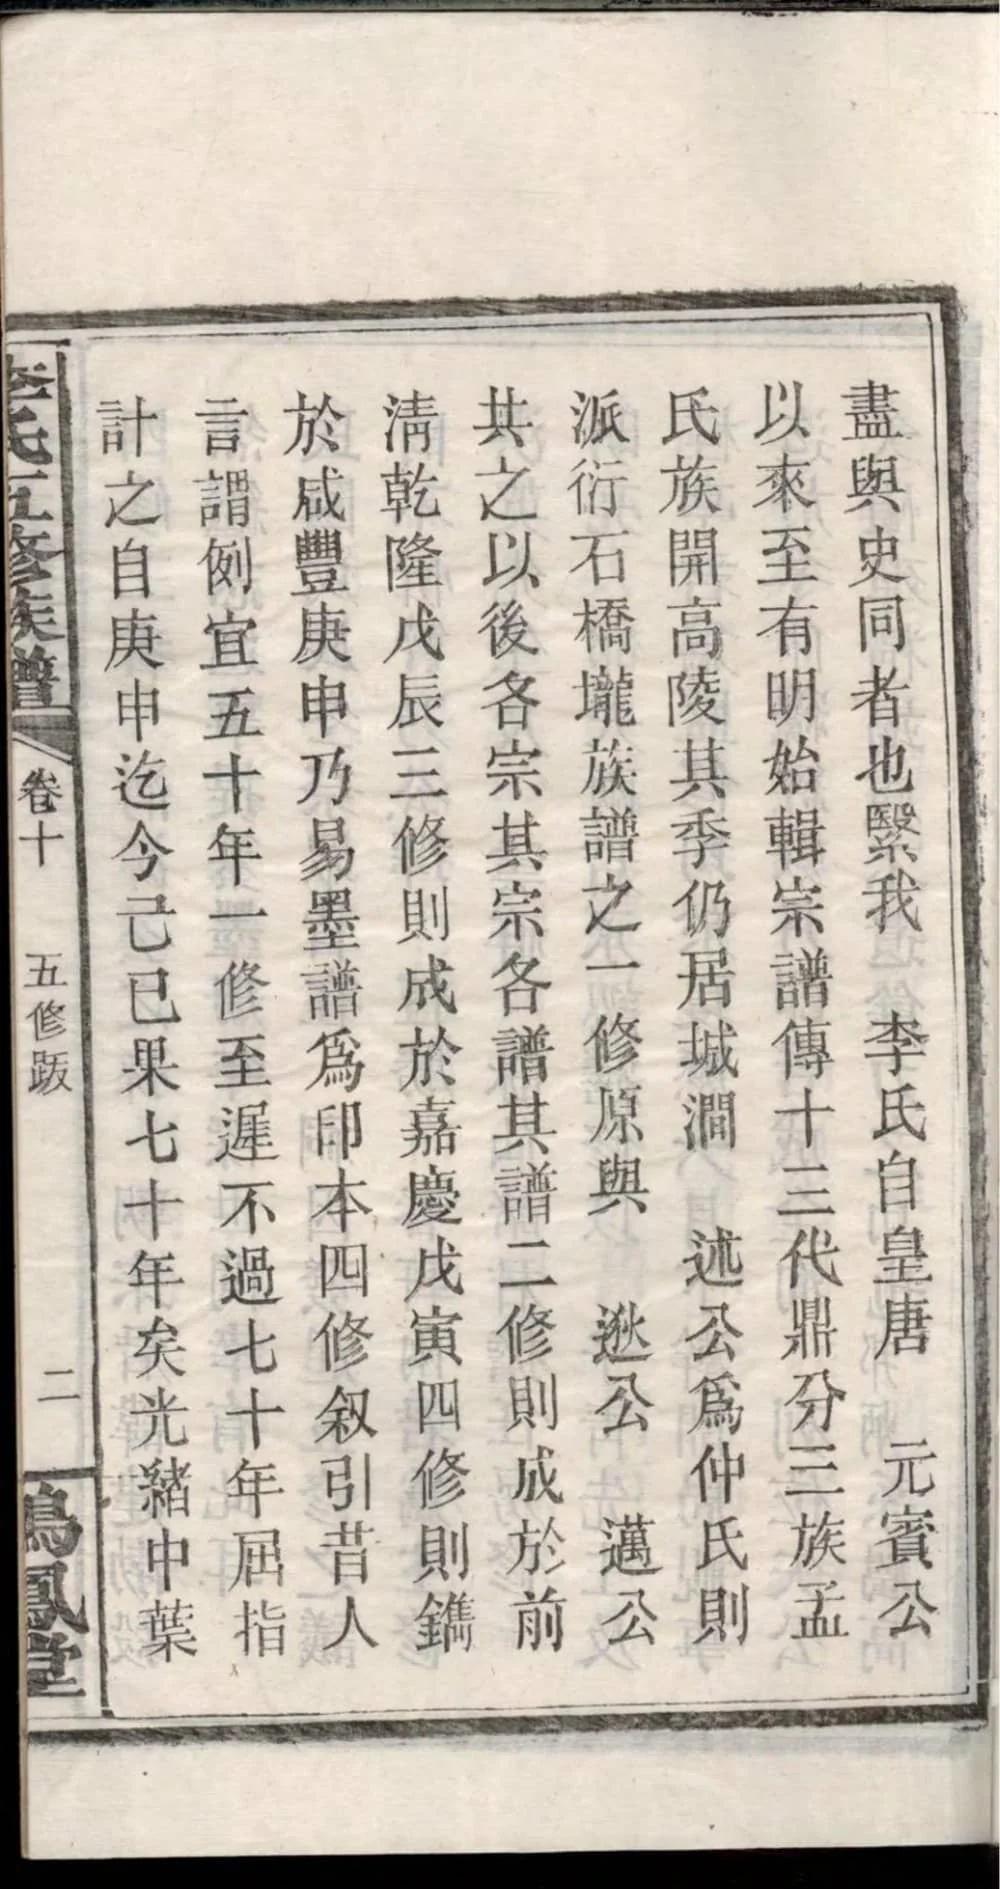 盡與史同者也緊我　李氏自皇唐　元賓公
以來至有明始輯宗譜傳十三代鼎分三族孟
氏族開高陵其季仍居城澗　述公爲仲氏則
派衍石橋壠族譜之一修原與　逖公　邁公
共之以後各宗其宗各譜其譜二修則成於前
淸乾隆戊辰三修則成於嘉慶戊寅四修則鐫
於咸豐庚申乃易墨譜爲印本四修叙引昔人
言謂例宜五十年一修至遲不過七十年屈指
計之自庚申迄今己巳果七十年矣光緒中葉
李氏五修族譜
卷十
五修跋
二
鳳堂